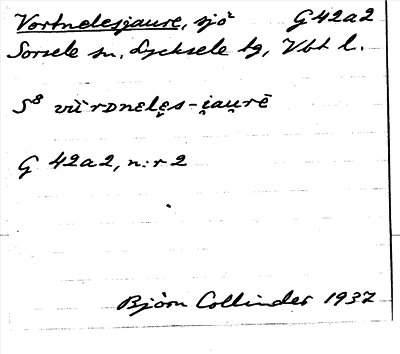 Vortnelesjaure, sjö G 42 a 2
Sorsele sn, Lycksele tg, Vbt l.
S8
G 42 a 2, n:r 2
Björn Collinder 1937